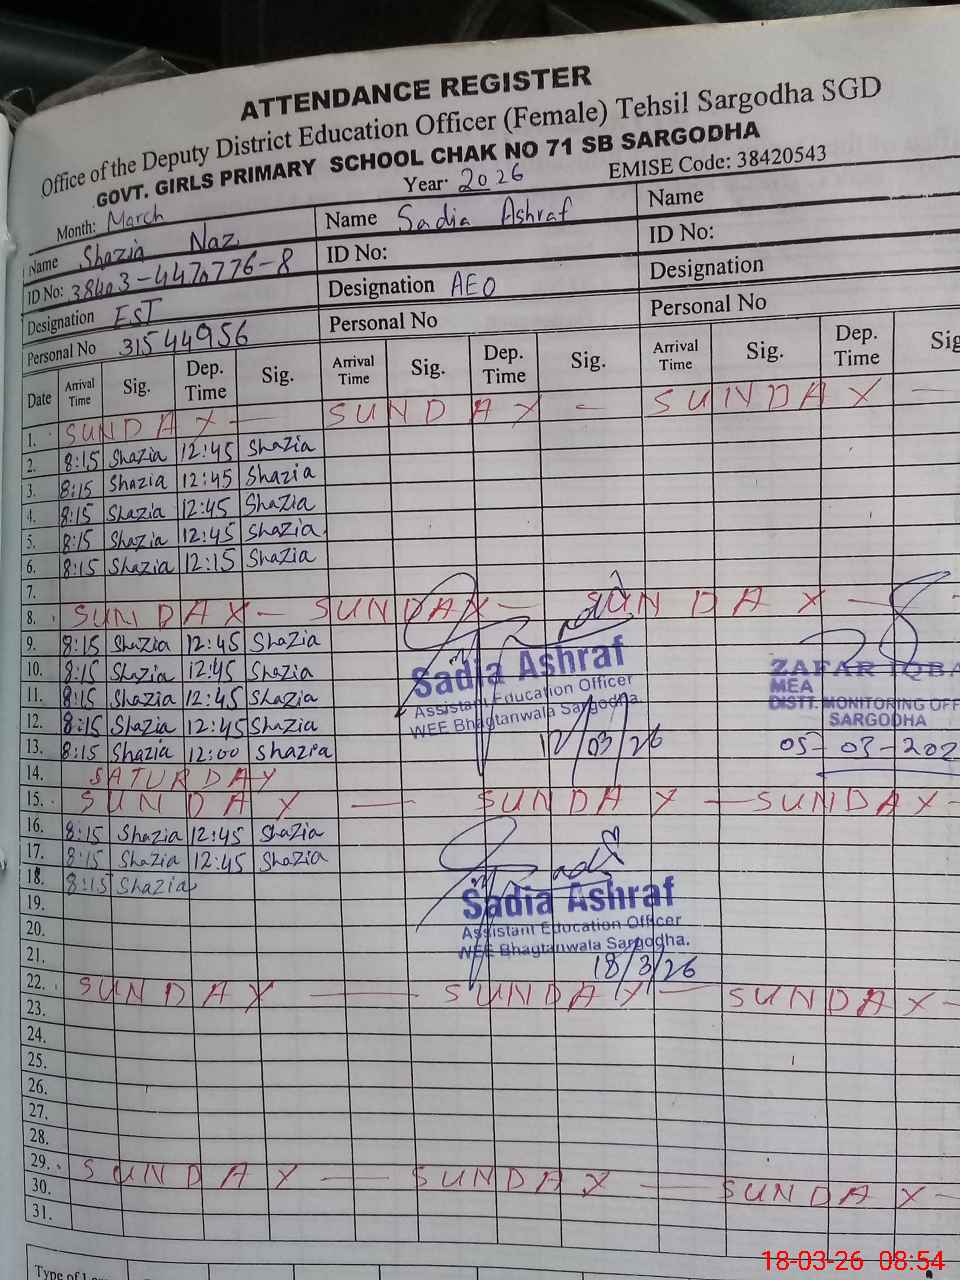 ATTENDANCE REGISTER
Office of the Deputy District Education Officer (Female) Tehsil Sargodha SGD
GOVT. GIRLS PRIMARY SCHOOL CHAK NO 71 SB SARGODHA
Month: March Year: 2026 EMISE Code: 38420543
Name Shazia Naz Name Sadia Ashraf Name
ID No: 38403-4470776-8 ID No: ID No:
Designation EST Designation AEO Designation
Personal No 31544956 Personal No Personal No
Date Arrival Time Sig. Dep. Time Sig. Arrival Time Sig. Dep. Time Sig. Arrival Time Sig. Dep. Time Sig
1. SUNDAY — SUNDAY — SUNDAY —
2. 8:15 Shazia 12:45 Shazia
3. 8:15 Shazia 12:45 Shazia
4. 8:15 Shazia 12:45 Shazia
5. 8:15 Shazia 12:45 Shazia
6. 8:15 Shazia 12:15 Shazia
7.
8. SUNDAY — SUNDAY — SUNDAY —
9. 8:15 Shazia 12:45 Shazia
10. 8:15 Shazia 12:45 Shazia
11. 8:15 Shazia 12:45 Shazia
12. 8:15 Shazia 12:45 Shazia
13. 8:15 Shazia 12:00 Shazia
Sadia Ashraf
Assistant Education Officer
WEE Bhagtanwala Sargodha
12/03/26
ZAFAR IQBA
MEA
DISTT. MONITORING OFF
SARGODHA
05-03-202
14. SATURDAY
15. SUNDAY — SUNDAY — SUNDAY —
16. 8:15 Shazia 12:45 Shazia
17. 8:15 Shazia 12:45 Shazia
18. 8:15 Shazia
19.
20.
21.
Sadia Ashraf
Assistant Education Officer
WEE Bhagtanwala Sargodha.
18/3/26
22. SUNDAY — SUNDAY — SUNDAY —
23.
24.
25.
26.
27.
28.
29. SUNDAY — SUNDAY — SUNDAY —
30.
31.
Type of
18-03-26 08:54